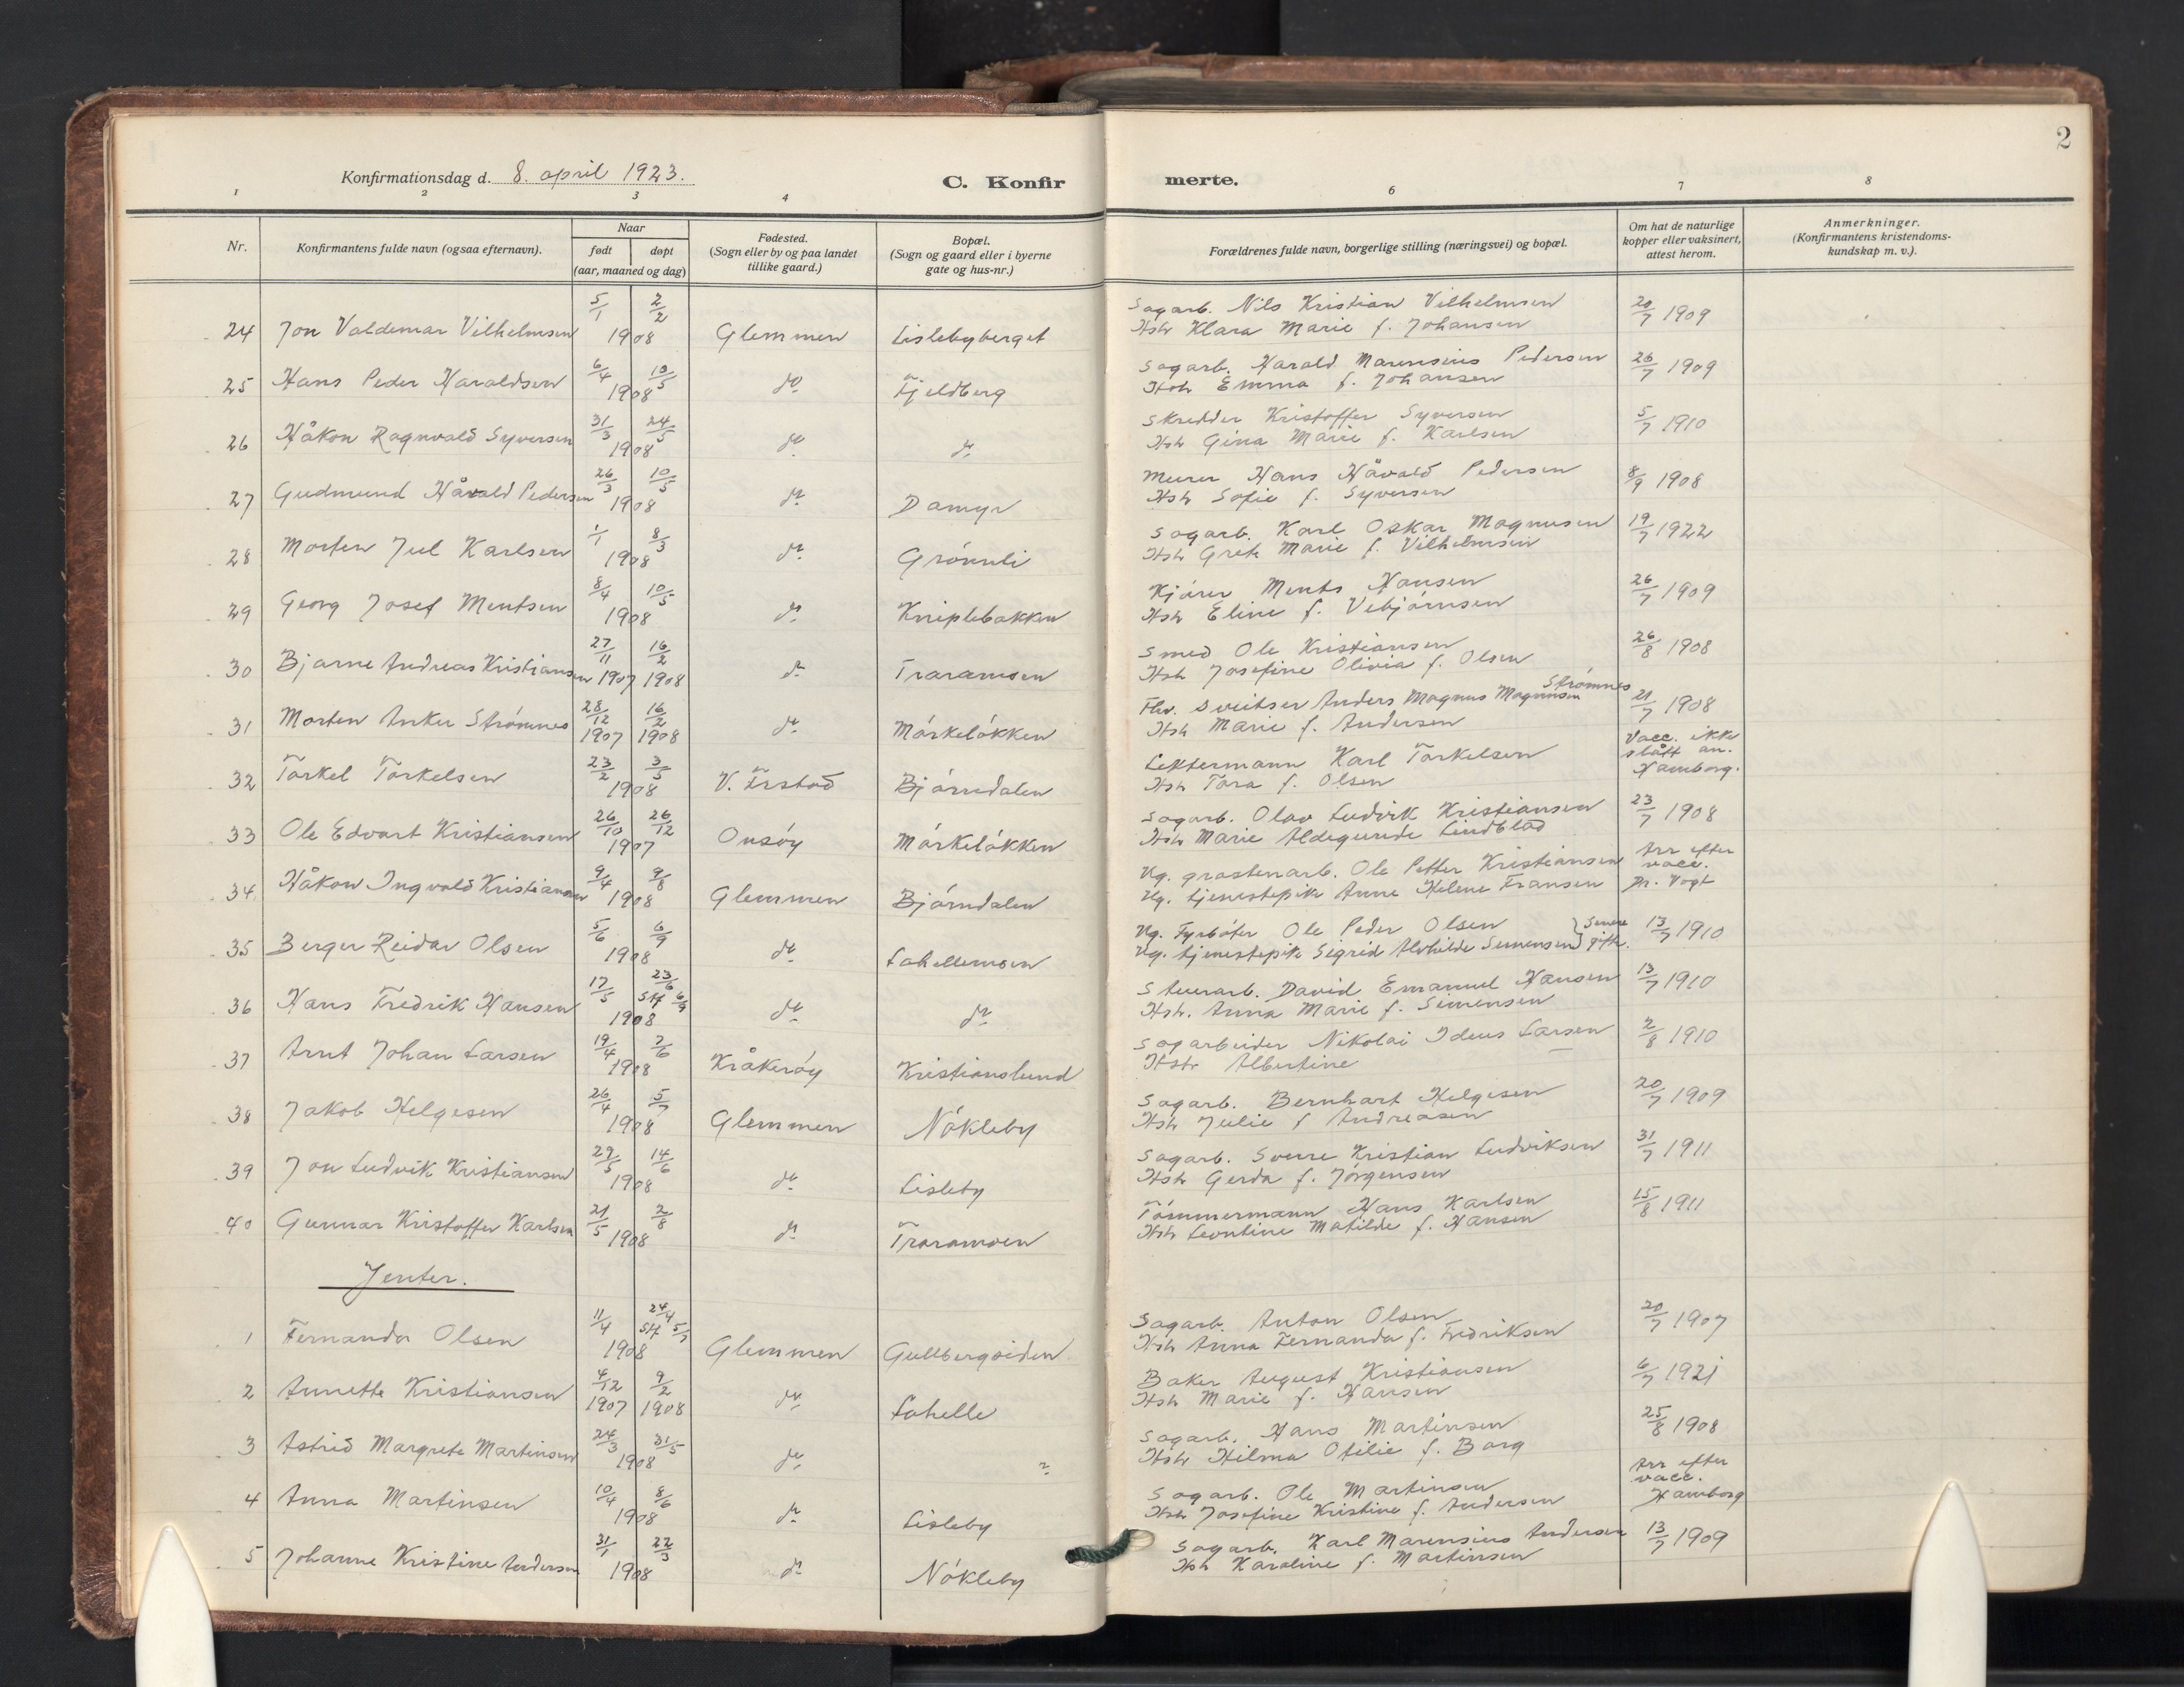 2
Konfirmationsdag d. 8. april 1923.
C. Konfirmerte.
1 2 3 4 6 7 8
Nr.
Konfirmantens fulde navn (ogsaa efternavn).
Naar
født døpt
(aar, maaned og dag)
Fødested.
(Sogn eller by og paa landet
tillike gaard.)
Bopæl.
(Sogn og gaard eller i byerne
gate og hus-nr.)
Forældrenes fulde navn, borgerlige stilling (næringsvei) og bopæl.
Om hat de naturlige
kopper eller vaksinert,
attest herom.
Anmerkninger.
(Konfirmantens kristendoms-
kundskap m. v.).
24 Jon Valdemar Vilhelmsen 5/1 2/2 1908 Glemmen Lislebyberget
Sagarb. Nils Kristian Vilhelmsen 20/7 1909
Hstr Klara Marie f. Johansen
25 Hans Peder Haraldsen 6/4 10/5 1908 do Fjeldberg
Sagarb. Harald Marensius Pedersen 26/7 1909
Hstr Emma f. Johansen
26 Håkon Ragnvald Syversen 31/3 24/5 1908 do do
Skredder Kristoffer Syversen 5/7 1910
Hstr Gina Marie f. Karlsen
27 Gudmund Håvald Pedersen 26/3 10/5 1908 do Damyr
Murer Hans Håvald Pedersen 8/9 1908
Hstr Sofie f. Syversen
28 Morten Jul Karlsen 1/1 8/3 1908 do Grönnli
Sagarb. Karl Oskar Magnusen 19/7 1922
Hstr Grete Marie f. Vilhelmsen
29 Georg Josef Mentsen 8/4 10/5 1908 do Kniplebakken
Kjörer Ments Hansen 26/7 1909
Hstr Eline f. Vebjörnsen
30 Bjarne Andreas Kristiansen 27/11 1907 16/2 1908 do Traramoen
Smed Ole Kristiansen 26/8 1908
Hstr Josefine Olivia f. Olsen
31 Morten Anker Strömnes 28/12 1907 16/2 1908 do Mörkelökken
Strömnes
Fhv. Sveitser Anders Magnus Magnusen 21/7 1908
Hstr Marie f. Andersen
32 Torkel Torkelsen 23/2 3/5 1908 V. Frstad Björndalen
Lektermann Karl Torkelsen Vacc. ikke
slått an.
Hamborg.
Hstr Tora f. Olsen
33 Ole Edvart Kristiansen 26/10 26/12 1907 Onsöy Mörkelökken
Sagarb. Olav Ludvik Kristiansen 23/7 1908
Hstr Marie Aldegunde Lindblad
34 Håkon Ingvald Kristiansen 9/4 9/8 1908 Glemmen Björndalen
Ug. grastenarb. Ole Petter Kristiansen Arr efter
vacc.
Ug. tjenestepike Anne Helene Fransen Dr. Vogt
35 Berger Reidar Olsen 5/6 6/9 1908 do Lahellemoen
Ug. Fyrböter Ole Peder Olsen } Senere 13/7 1910
Ug. tjenestepike Sigrid Alvhilde Simensen } gifte.
36 Hans Fredrik Hansen 17/5 23/6 Stf 6/9 1908 do do
Stuerarb. David Emanuel Hansen 13/7 1910
Hstr. Anna Marie f. Simensen
37 Arnt Johan Larsen 19/4 7/6 1908 Kråkeröy Kristianslund
Sagarbeider Nikolai Ideus Larsen 2/8 1910
Hstr Albertine
38 Jakob Helgesen 26/4 5/7 1908 Glemmen Nökleby
Sagarb. Bernhart Helgesen 20/7 1909
Hstr Julie f Andreasen
39 Jon Ludvik Kristiansen 27/5 14/6 1908 do Lisleby
Sagarb. Sverre Kristian Ludviksen 31/7 1911
Hstr Gerda f. Jörgensen
40 Gunnar Kristoffer Karlsen 21/5 2/8 1908 do Traramoen
Tömmermann Hans Karlsen 15/8 1911
Hstr Leontine Matilde f. Hansen
Jenter.
1 Fernanda Olsen 11/4 24/4 Stf 5/7 1908 Glemmen Gullbergsiden
Sagarb. Anton Olsen 20/7 1907
Hstr Anna Fernanda f. Fredriksen
2 Annette Kristiansen 4/12 1907 9/2 1908 do Lahelle
Baker August Kristiansen 6/7 1921
Hstr Marie f. Hansen
3 Astrid Margrete Martinsen 24/3 31/5 1908 do "
Sagarb. Hans Martinsen 25/8 1908
Hstr Hilma Otilie f. Borg
4 Anna Martinsen 10/4 8/6 1908 do Lisleby
Sagarb. Ole Martinsen Arr efter
vacc.
Hamborg
Hstr Josefine Kristine f. Andersen
5 Johanne Kristine Andersen 31/1 22/3 1908 do Nökleby
Sagarb. Karl Marensius Andersen 13/7 1909
Hstr Karoline f. Martinsen